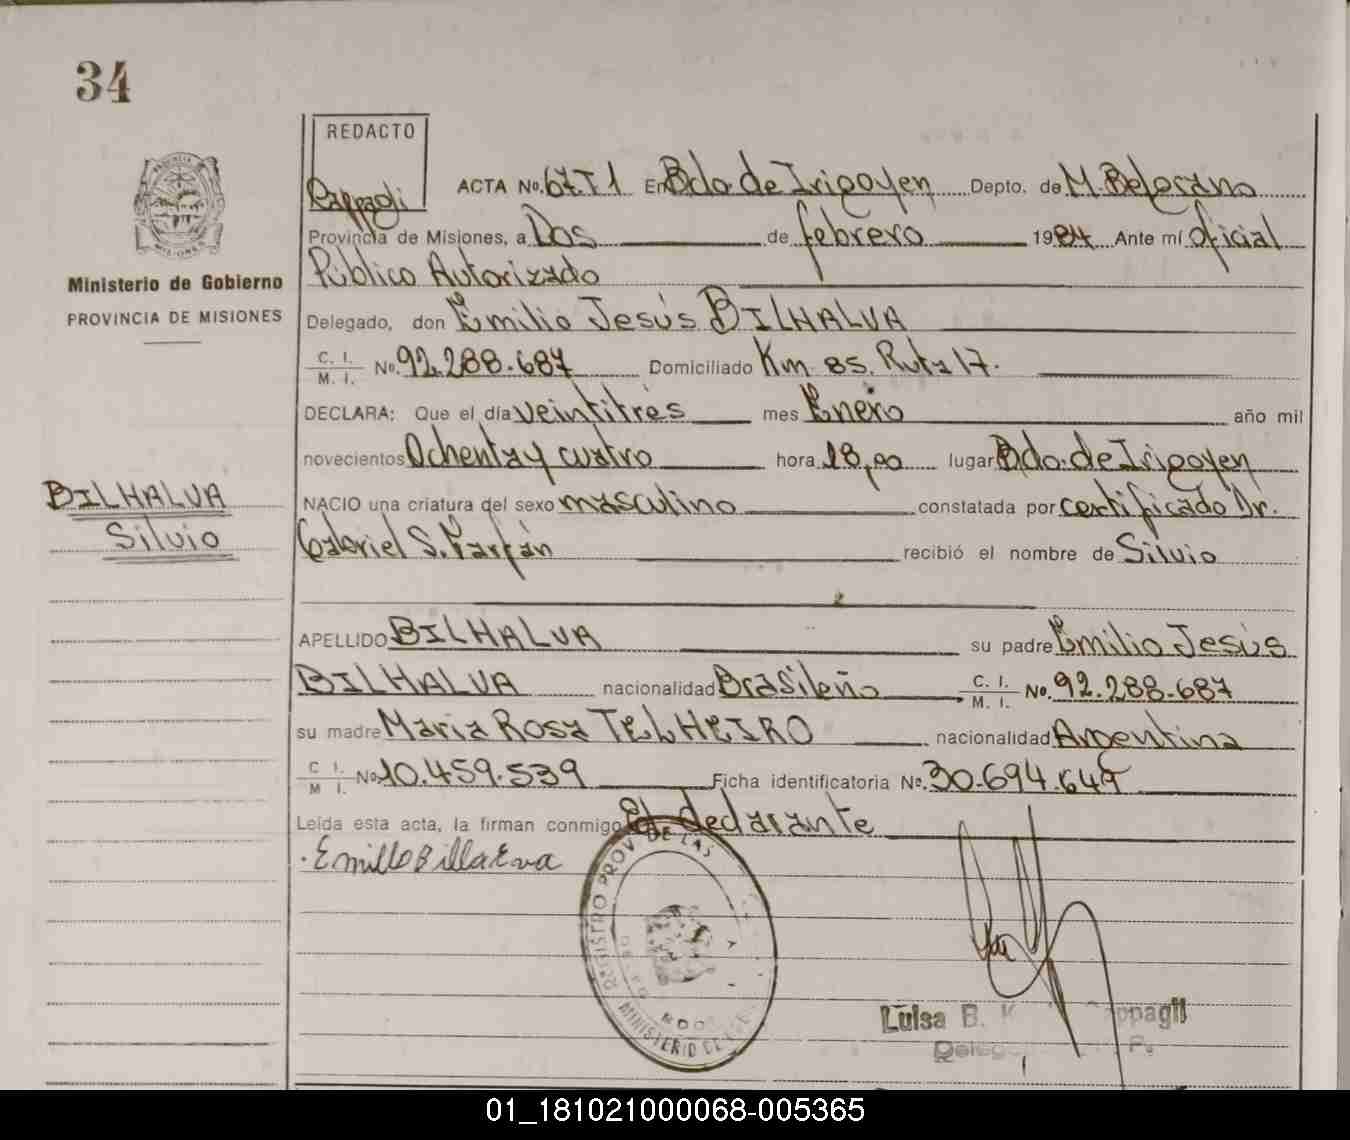 34
REDACTO
Cappagli
ACTA No. 67.T1 En Bdo de Irigoyen Depto. de M. Belgrano
Provincia de Misiones, a Dos de febrero 1984 Ante mí Oficial
Público Autorizado
Ministerio de Gobierno
PROVINCIA DE MISIONES
Delegado, don Emilio Jesús BILHALVA
C. I. M. I. No. 92.288.687 Domiciliado Km 85. Ruta 17.
DECLARA: Que el día veintitrés mes Enero año mil
novecientos Ochenta y cuatro hora 18,00 lugar Bdo. de Irigoyen
BILHALVA
Silvio
NACIO una criatura del sexo masculino constatada por certificado Dr.
Gabriel S. Farfán recibió el nombre de Silvio
APELLIDO BILHALVA su padre Emilio Jesús
BILHALVA nacionalidad Brasileño C. I. M. I. No. 92.288.687
su madre Maria Rosa TELHEIRO nacionalidad Argentina
C I. M I. No 10.459.539 Ficha identificatoria No. 30.694.649
Leída esta acta, la firman conmigo El declarante
REGISTRO PROV DE LAS
MINISTERIO DE
Luisa B. K ppagli
Deleg P.
01_181021000068-005365